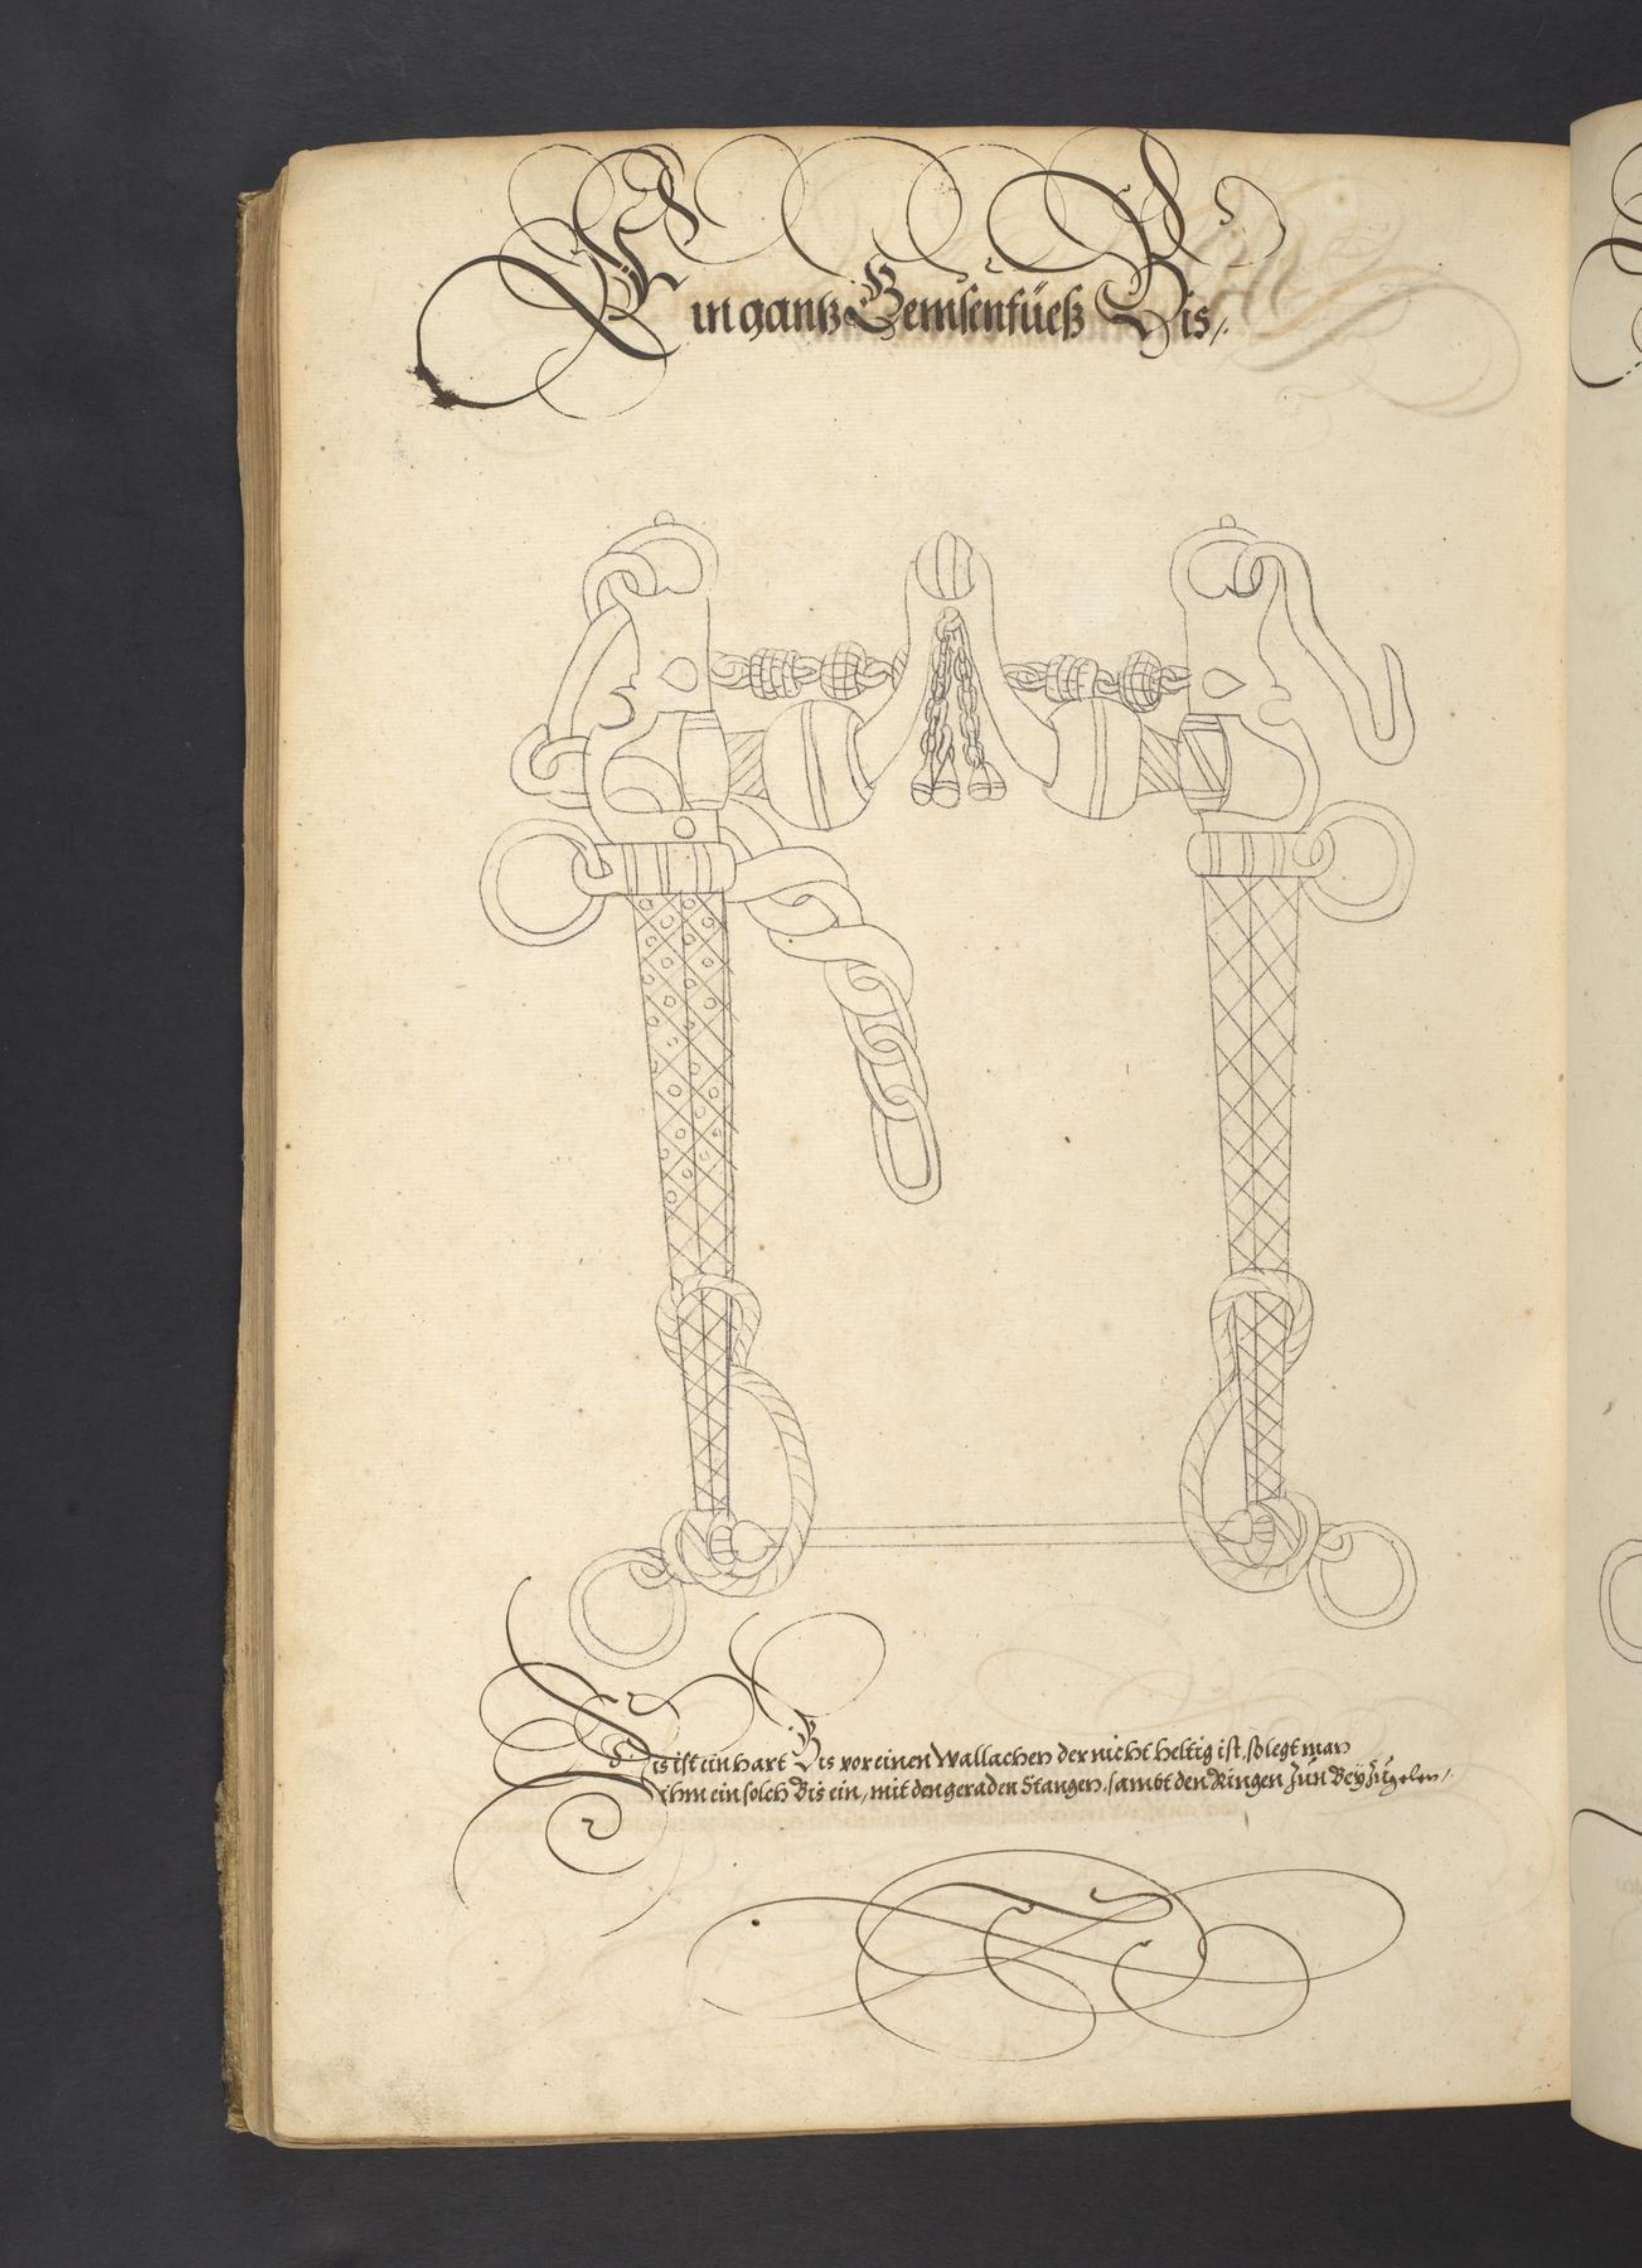 Ein gantz Gemsenfüeß Bis /.
Dis ist ein hart Bis vor einen Wallachen der nicht heltig ist, so legt man
ihm ein solch Bis ein, mit den geraden Stangen, sambt den Ringen zun Beyzügelen /.